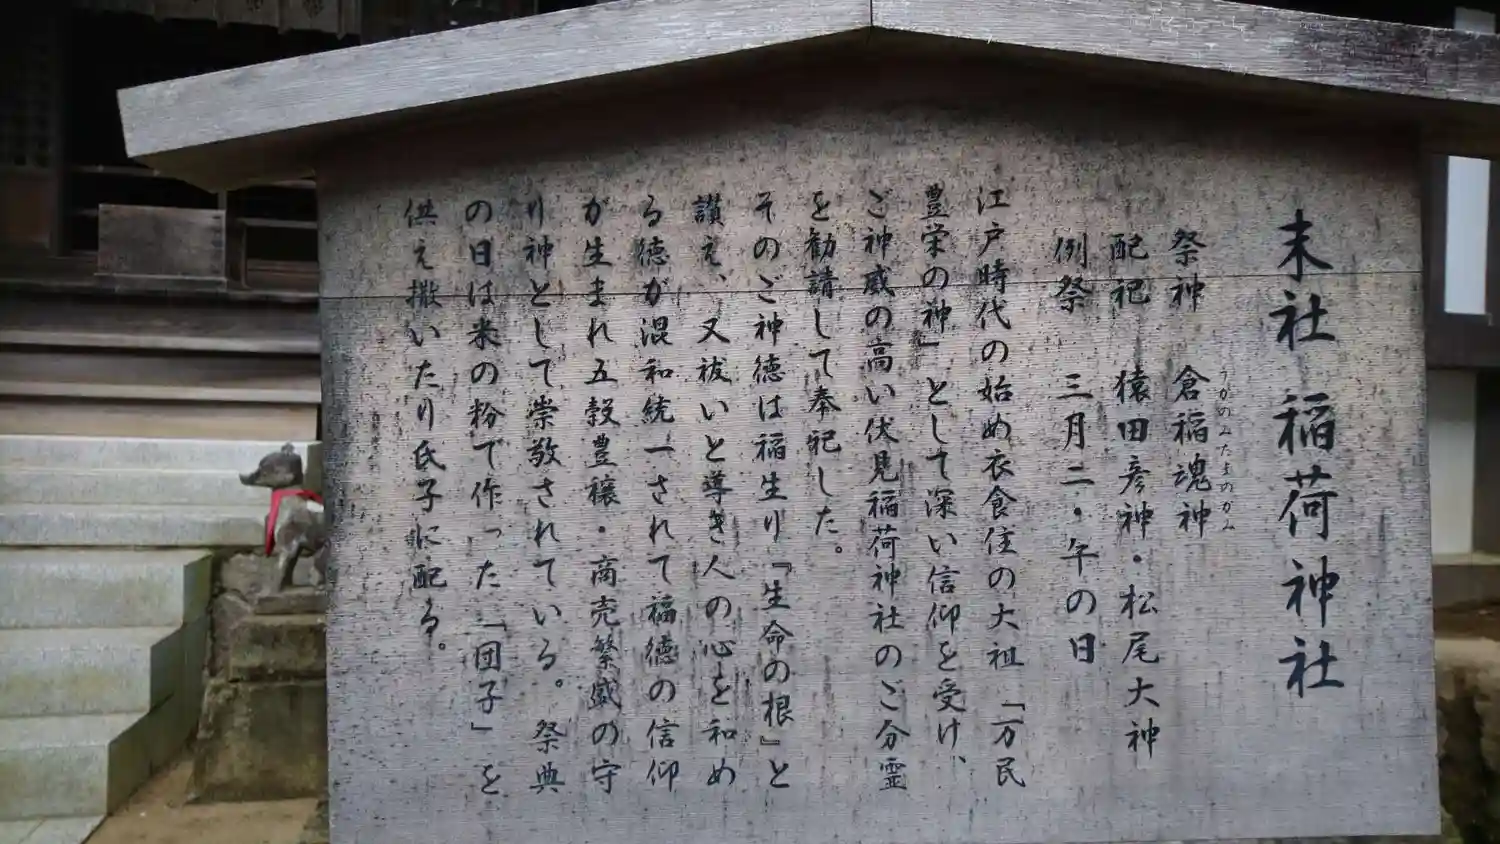 末社 稲荷神社
祭神 倉稲魂神
うかのみたまのかみ
配祀 猿田彦神・松尾大神
例祭 三月二・午の日
江戸時代の始め衣食住の大祖「万民
豊栄の神」として深い信仰を受け、
ご神威の高い伏見稲荷神社のご分霊
を勧請して奉祀した。
そのご神徳は稲生り『生命の根』と
讃え、又祓いと導き人の心を和め
る徳が混和統一されて福徳の信仰
が生まれ五穀豊穣・商売繁盛の守
り神として崇敬されている。祭典
の日は米の粉で作った「団子」を
供え撒いたり氏子に配る。